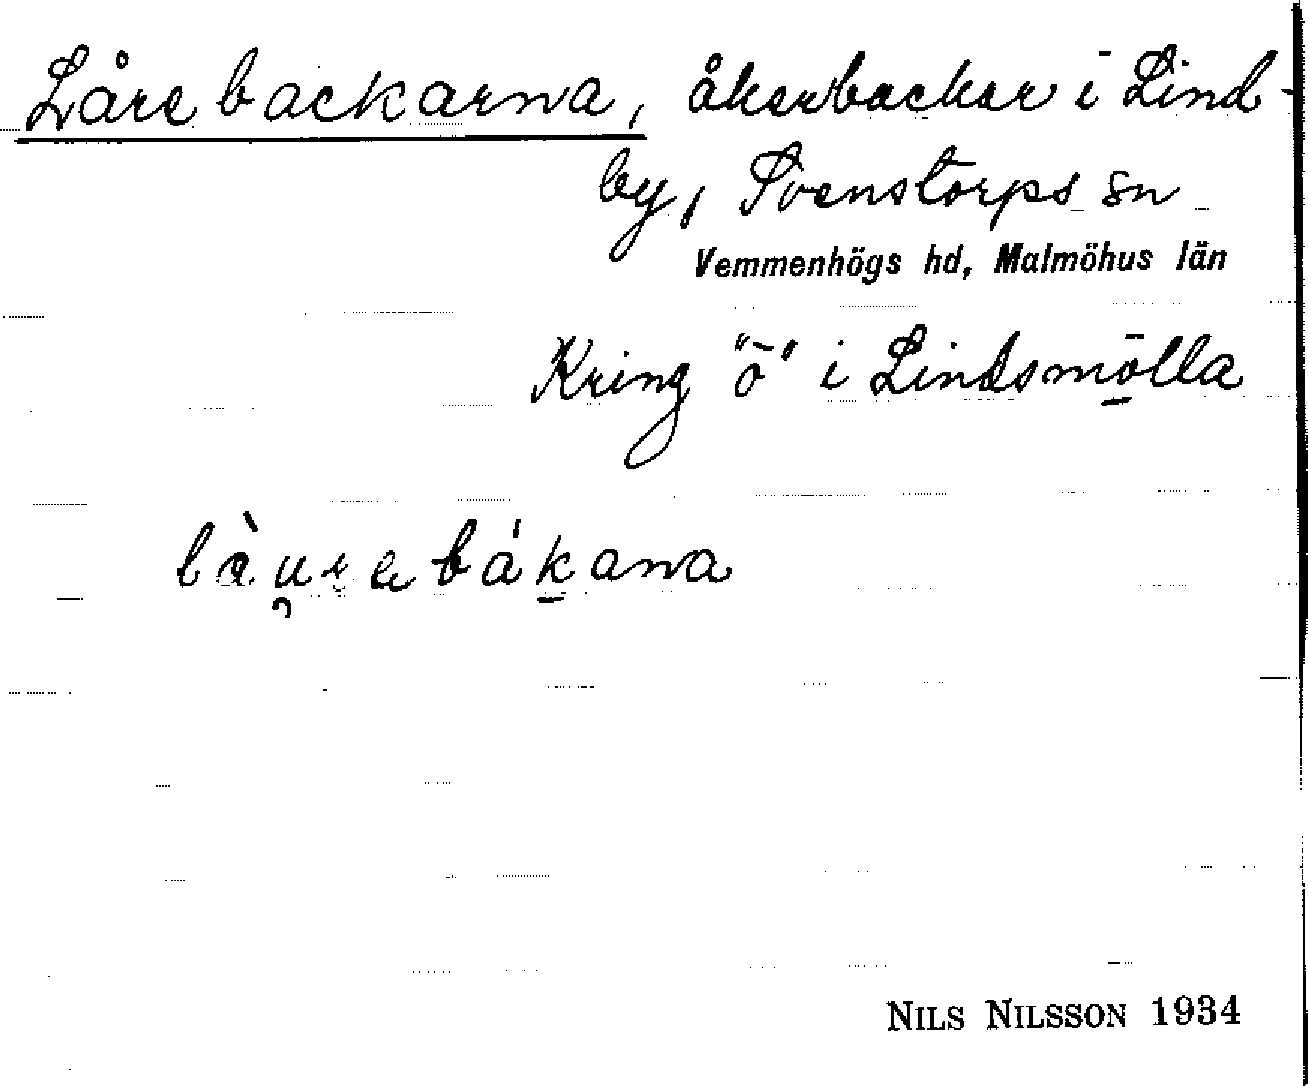 Låre backarna, åkerbackar i Lind-
by, Svenstorps sn
Vemmenhögs hd, Malmöhus län
Kring "ö" i Lindsmölla
NILS NILSSON 1934